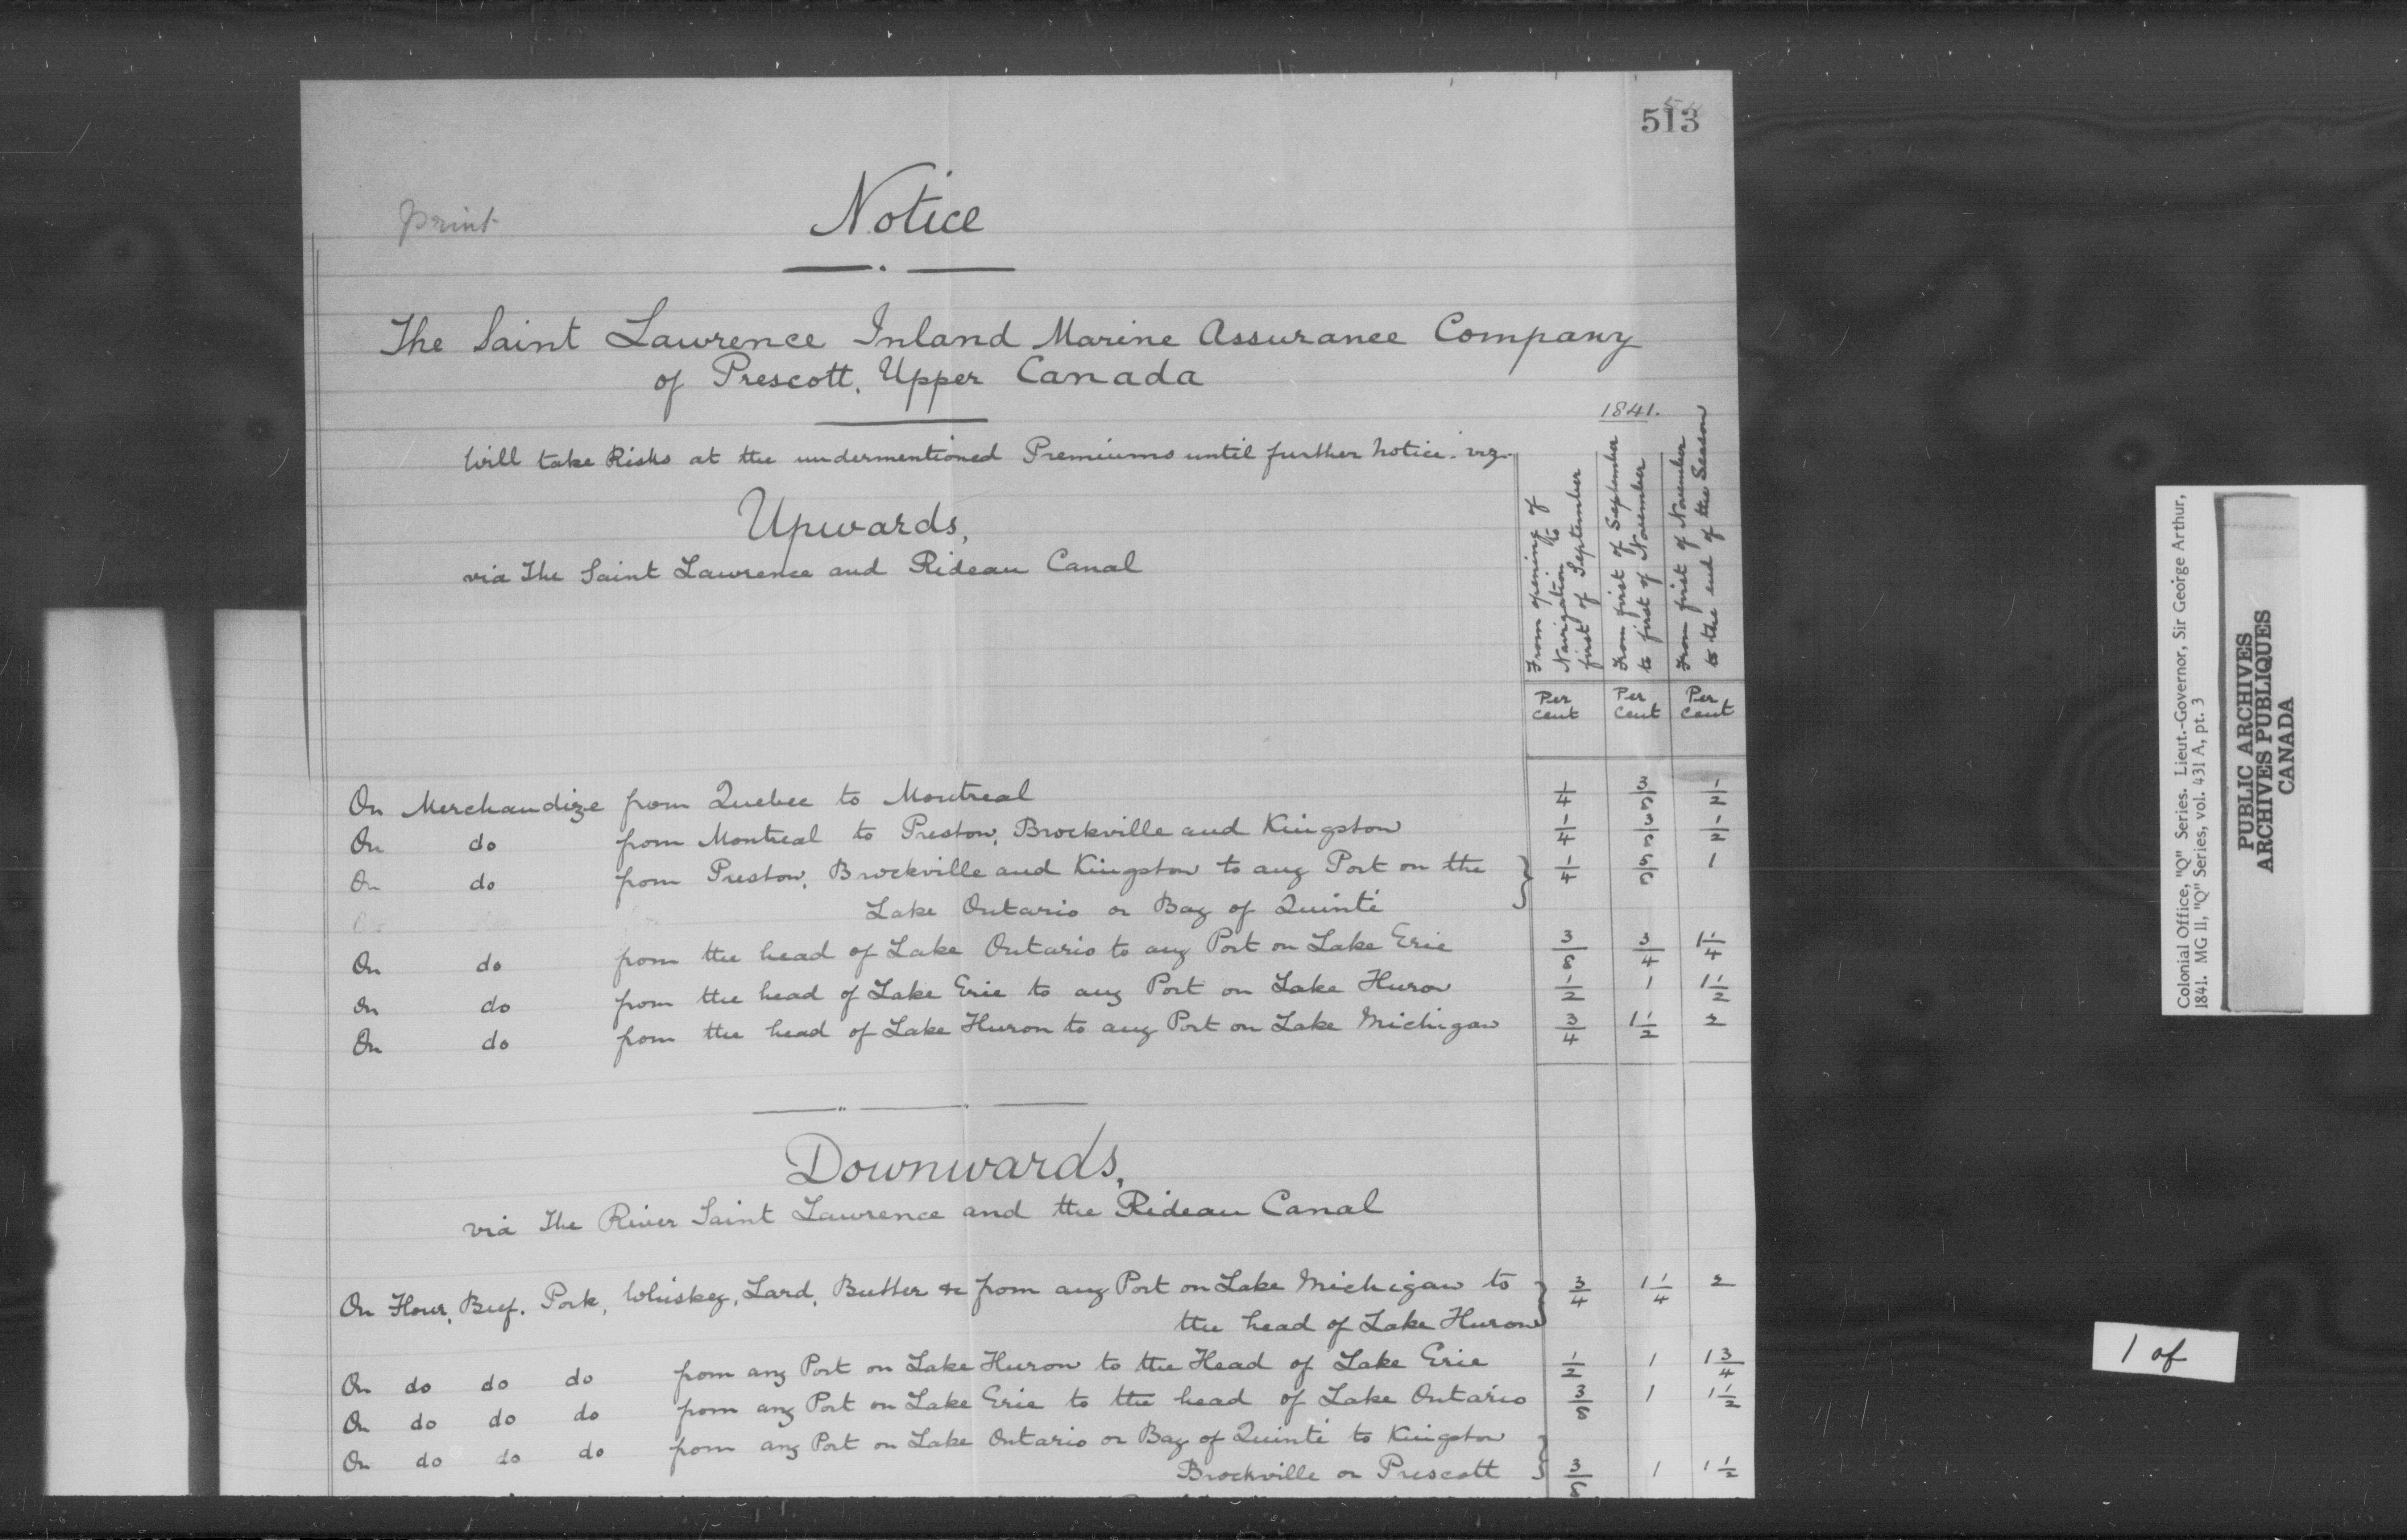 513
print
Notice
The Saint Lawrence Inland Marine Assurance Company
of Prescott, Upper Canada
1841.
Will take Risks at the undermentioned Premiums until further Notice. viz.
From opening of Navigation to first of September
From first of September to first of November
From first of November to the end of the Season
Upwards,
via The Saint Lawrence and Rideau Canal
Per cent Per cent Per cent
On Merchandize from Quebec to Montreal 1/4 3/8 1/2
On do from Montreal to Preston, Brockville and Kingston 1/4 3/8 1/2
On do from Preston, Brockville and Kingston to any Port on the } 1/4 5/8 1
Lake Ontario or Bay of Quinté
On do from the head of Lake Ontario to any Port on Lake Erie 3/8 3/4 1 1/4
On do from the head of Lake Erie to any Port on Lake Huron 1/2 1 1 1/2
On do from the head of Lake Huron to any Port on Lake Michigan 3/4 1 1/2 2
Downwards,
via The River Saint Lawrence and the Rideau Canal
On Flour, Beef, Pork, Whiskey, Lard, Butter &c from any Port on Lake Michigan to } 3/4 1 1/4 2
the head of Lake Huron
On do do do from any Port on Lake Huron to the Head of Lake Erie 1/2 1 1 3/4
On do do do from any Port on Lake Erie to the head of Lake Ontario 3/8 1 1 1/2
On do do do from any Port on Lake Ontario or Bay of Quinté to Kingston }
Brockville or Prescott 3/8 1 1 1/2
Colonial Office, "Q" Series. Lieut.-Governor, Sir George Arthur,
1841. MG 11, "Q" Series, vol. 431 A, pt. 3
PUBLIC ARCHIVES
ARCHIVES PUBLIQUES
CANADA
1 of